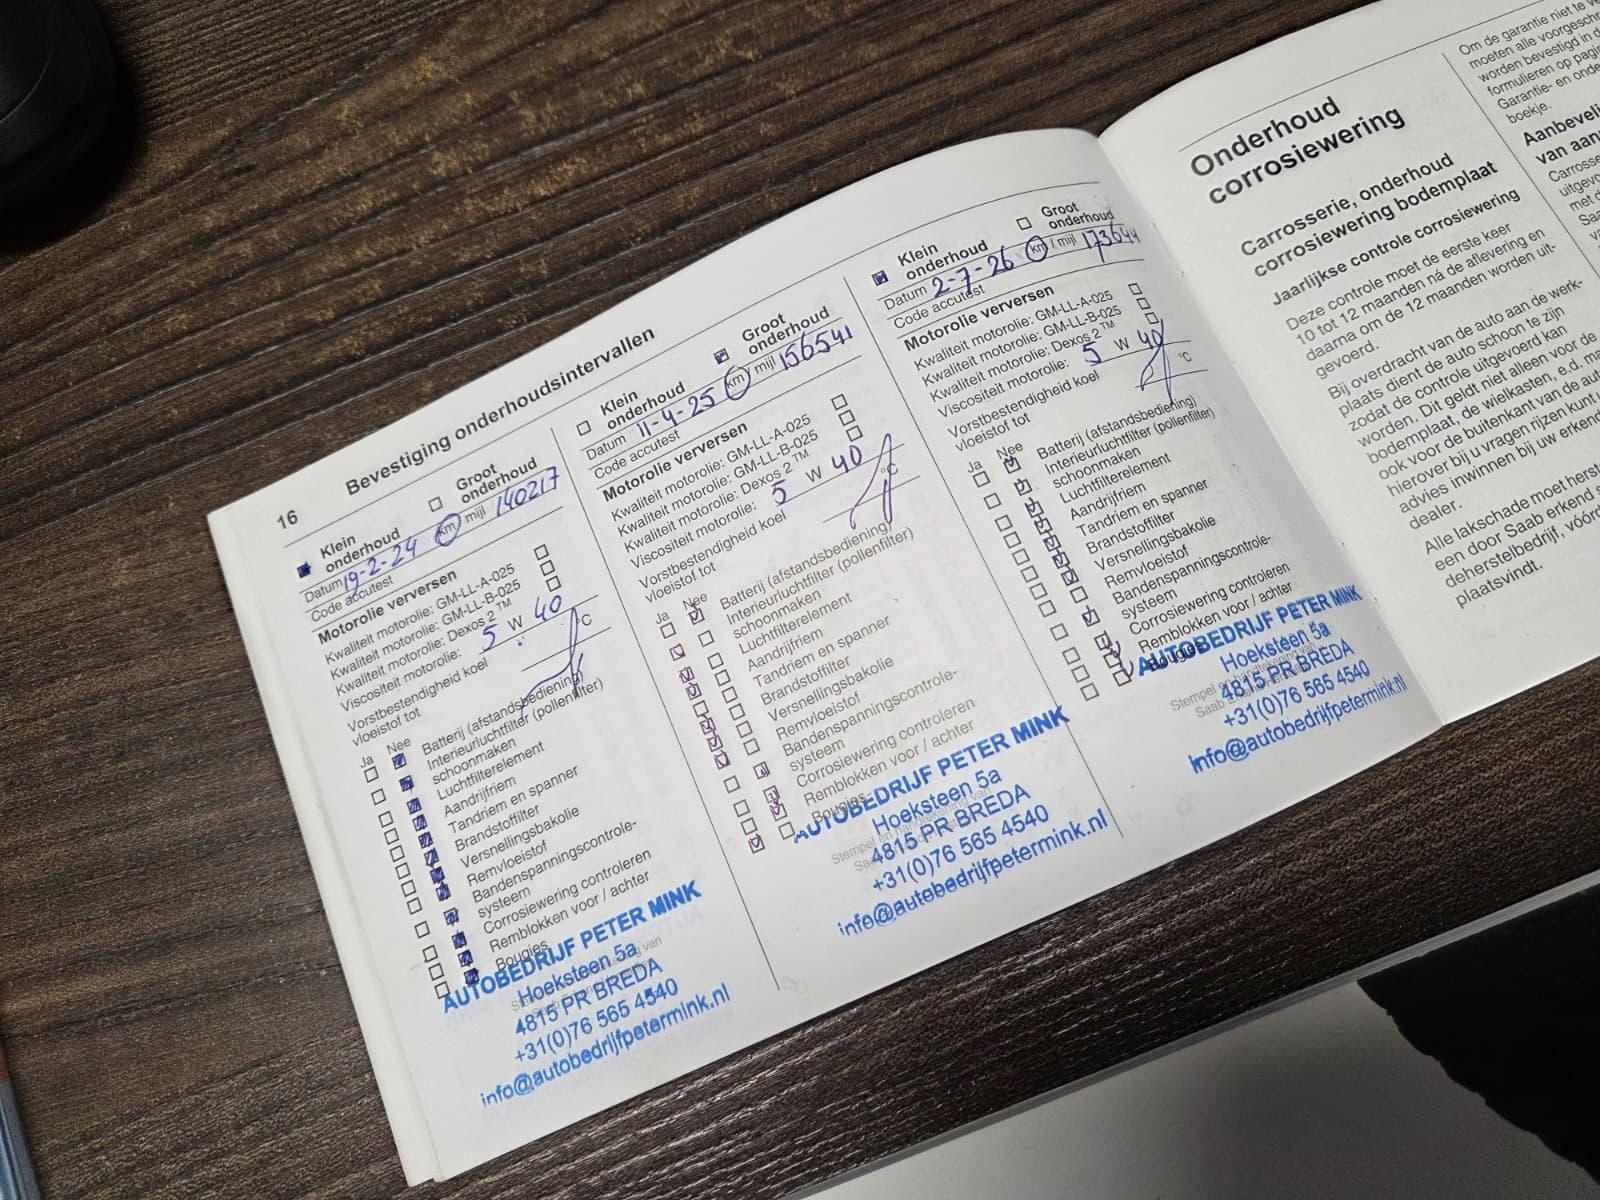 16
Bevestiging onderhoudsintervallen
Klein onderhoud
Groot onderhoud
Datum 19-2-24 km / mijl 140217
Code accutest
Motorolie verversen
Kwaliteit motorolie: GM-LL-A-025
Kwaliteit motorolie: GM-LL-B-025
Kwaliteit motorolie: Dexos 2™
Viscositeit motorolie: 5 W 40
Vorstbestendigheid koel
vloeistof tot °C
Ja Nee
Batterij (afstandsbediening)
Interieurluchtfilter (pollenfilter)
schoonmaken
Luchtfilterelement
Aandrijfriem
Tandriem en spanner
Brandstoffilter
Versnellingsbakolie
Remvloeistof
Bandenspanningscontrole-
systeem
Corrosiewering controleren
Remblokken voor / achter
Bougies
AUTOBEDRIJF PETER MINK
Hoeksteen 5a
4815 PR BREDA
+31(0)76 565 4540
info@autobedrijfpetermink.nl
Klein onderhoud
Groot onderhoud
Datum 11-4-25 km / mijl 156541
Code accutest
Motorolie verversen
Kwaliteit motorolie: GM-LL-A-025
Kwaliteit motorolie: GM-LL-B-025
Kwaliteit motorolie: Dexos 2™
Viscositeit motorolie: 5 W 40
Vorstbestendigheid koel
vloeistof tot °C
Ja Nee
Batterij (afstandsbediening)
Interieurluchtfilter (pollenfilter)
schoonmaken
Luchtfilterelement
Aandrijfriem
Tandriem en spanner
Brandstoffilter
Versnellingsbakolie
Remvloeistof
Bandenspanningscontrole-
systeem
Corrosiewering controleren
Remblokken voor / achter
Bougies
Stempel en handtekening van
AUTOBEDRIJF PETER MINK
Hoeksteen 5a
4815 PR BREDA
+31(0)76 565 4540
info@autobedrijfpetermink.nl
Klein onderhoud
Groot onderhoud
Datum 2-7-26 km / mijl 173644
Code accutest
Motorolie verversen
Kwaliteit motorolie: GM-LL-A-025
Kwaliteit motorolie: GM-LL-B-025
Kwaliteit motorolie: Dexos 2™
Viscositeit motorolie: 5 W 40
Vorstbestendigheid koel
vloeistof tot °C
Ja Nee
Batterij (afstandsbediening)
Interieurluchtfilter (pollenfilter)
schoonmaken
Luchtfilterelement
Aandrijfriem
Tandriem en spanner
Brandstoffilter
Versnellingsbakolie
Remvloeistof
Bandenspanningscontrole-
systeem
Corrosiewering controleren
Remblokken voor / achter
Bougies
AUTOBEDRIJF PETER MINK
Hoeksteen 5a
4815 PR BREDA
+31(0)76 565 4540
info@autobedrijfpetermink.nl
Onderhoud
corrosiewering
Carrosserie, onderhoud
corrosiewering bodemplaat
Jaarlijkse controle corrosiewering
Deze controle moet de eerste keer
10 tot 12 maanden ná de aflevering en
daarna om de 12 maanden worden uit-
gevoerd.
Bij overdracht van de auto aan de werk-
plaats dient de auto schoon te zijn
zodat de controle uitgevoerd kan
worden. Dit geldt niet alleen voor de
bodemplaat, de wielkasten, e.d. ma
ook voor de buitenkant van de aut
hierover bij u vragen rijzen kunt
advies inwinnen bij uw erkend
dealer.
Alle lakschade moet herst
een door Saab erkend s
deherstelbedrijf, vóórd
plaatsvindt.
Om de garantie niet te
moeten alle voorgesch
worden bevestigd in d
formulieren op pagi
Garantie- en onde
boekje.
Aanbeveli
van aan
Carrosse
uitgevo
met d
Saa